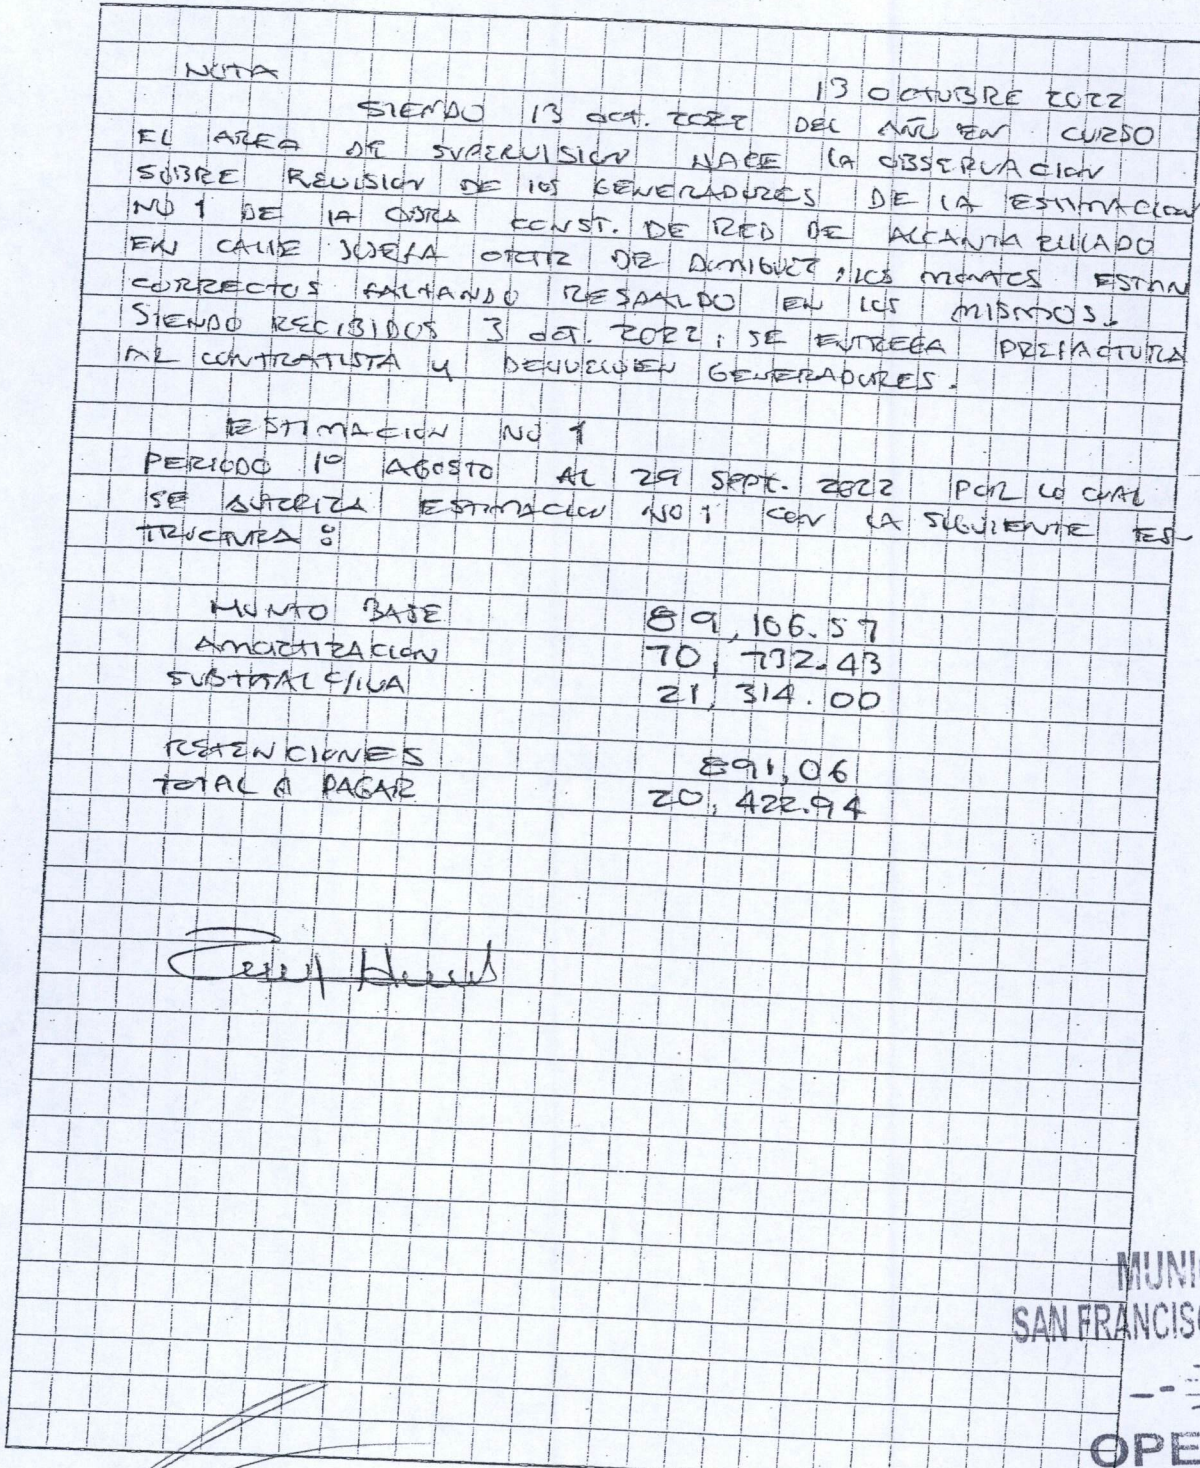 NOTA
13 OCTUBRE 2022
SIENDO 13 OCT. 2022 DEL AÑO EN CURSO
EL AREA DE SUPERVISION HACE LA OBSERVACION
SOBRE REVISION DE LOS GENERADORES DE LA ESTIMACION
NO 1 DE LA OBRA CONST. DE RED DE ALCANTARILLADO
EN CALLE JOSEFA ORTIZ DE DOMIGUEZ, LOS MONTOS ESTAN
CORRECTOS FALTANDO RESPALDO EN LOS MISMOS.
SIENDO RECIBIDOS 3 OCT. 2022; SE ENTREGA PREFACTURA
AL CONTRATISTA Y DEVUELVEN GENERADORES.
ESTIMACION NO 1
PERIODO 1º AGOSTO AL 29 SEPT. 2022 POR LO CUAL
SE AUTORIZA ESTIMACION NO 1 CON LA SIGUIENTE ES-
TRUCTURA:
MONTO BASE 89,106.57
AMORTIZACION 70,732.43
SUBTOTAL C/IVA 21,314.00
RETENCIONES 891,06
TOTAL A PAGAR 20,422.94
MUNI
SAN FRANCISC
OPE